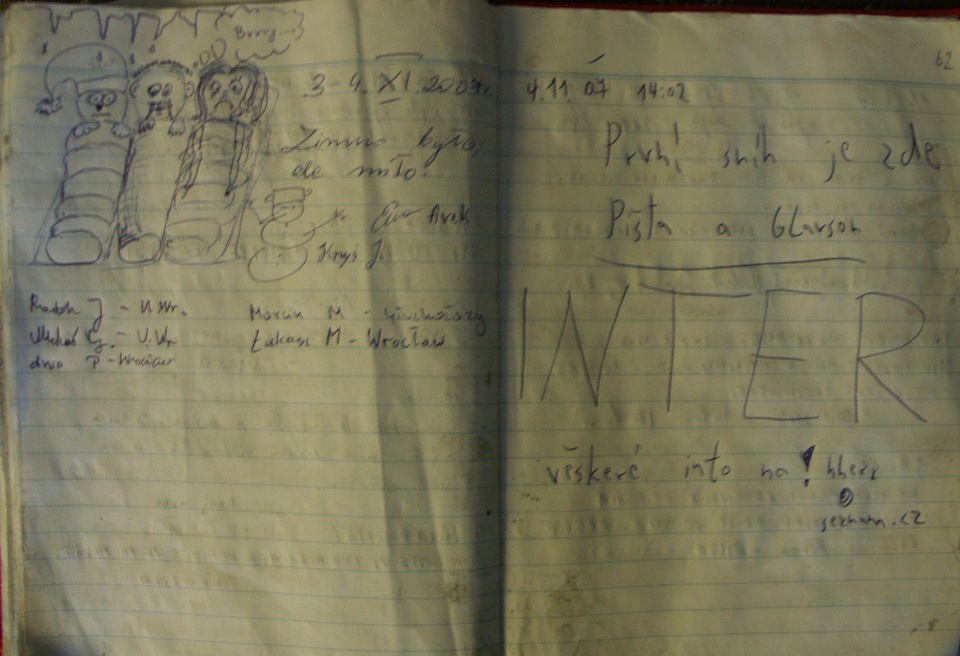 Brrry...
3-4. XI. 2007r.
Zimno było,
ale miło!
Ewa Arek
Krys J.
Radek J. - U.Wr.
Michał - U.Wr.
P - Wrocław
Marcin M - Głuchołazy
Łukasz M - Wrocław
62
4.11.07 14:02
První sníh je zde
Pišta a GLavson
INTER
věškeré info na!
@
seznam.cz